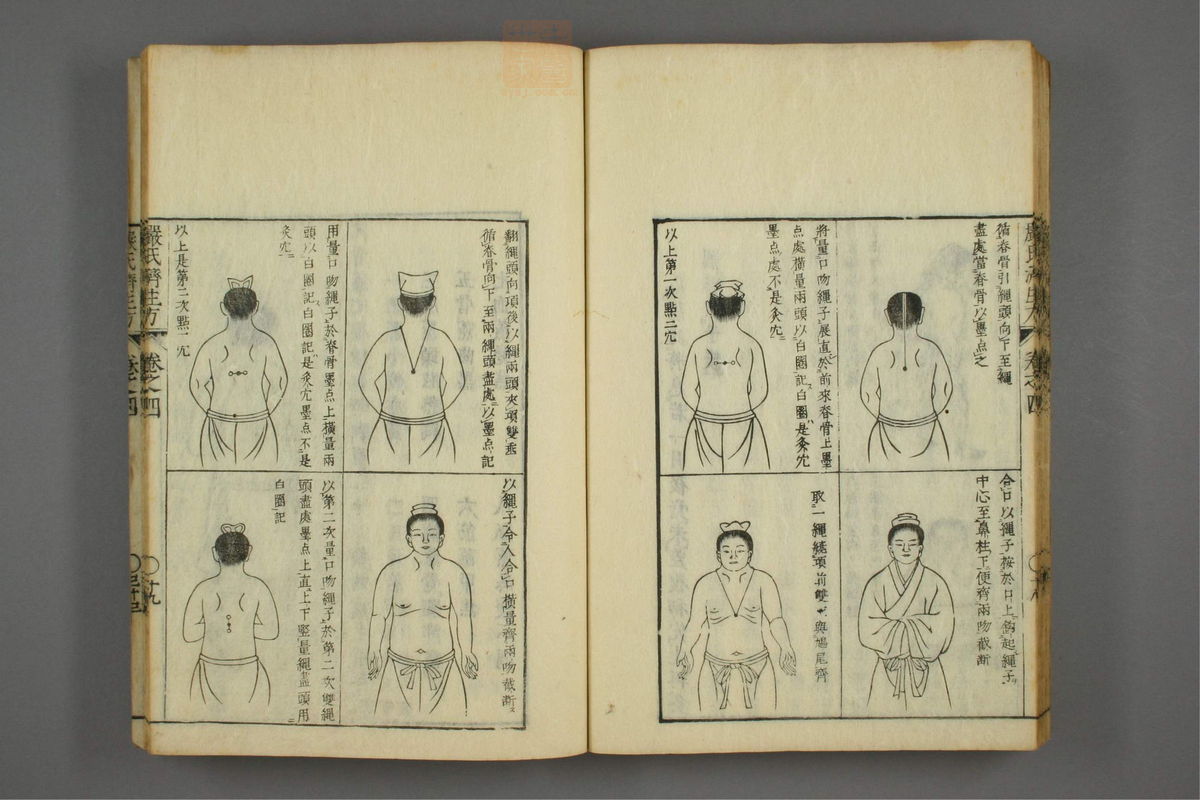 循脊骨引繩頭向下至繩
盡處當脊骨以墨点之
將量口吻繩子展直於前來脊骨上墨
点處橫量兩頭以白圈記白圈是灸穴
墨点處不是灸穴
以上第一次點二穴
合口以繩子按於口上鈎起繩子
中心至鼻柱下便齊兩吻截断
取一繩繞項前雙垂與鳩尾齊
翻繩頭向項後以繩兩頭夾項雙垂
循脊骨向下至兩繩頭盡處以墨点記
用量口吻繩子於脊骨墨点上橫量兩
頭以白圈記白圈記是灸穴墨点不是
灸穴
以上是第二次點二穴
以繩子令人合口橫量齊兩吻截断
以第二次量口吻繩子於第二次雙繩
頭盡處墨点上直上下竪量繩盡頭用
白圈記
嚴氏濟生方
卷之四
十九